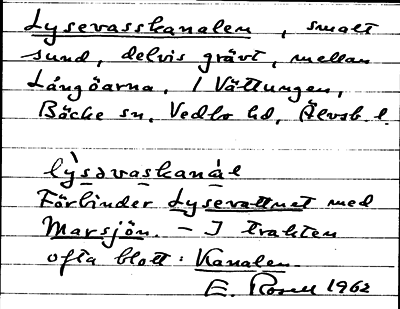 Lysevasskanalen, smalt
sund, delvis grävt, mellan
Långöarna, i Vättungen,
Bäcke sn, Vedbo hd, Älvsb. l.
lỳsəvaskaná̱l
Förbinder Lysevattnet med
Marsjön. – I trakten
ofta blott: Kanalen.
E. Rosell 1962